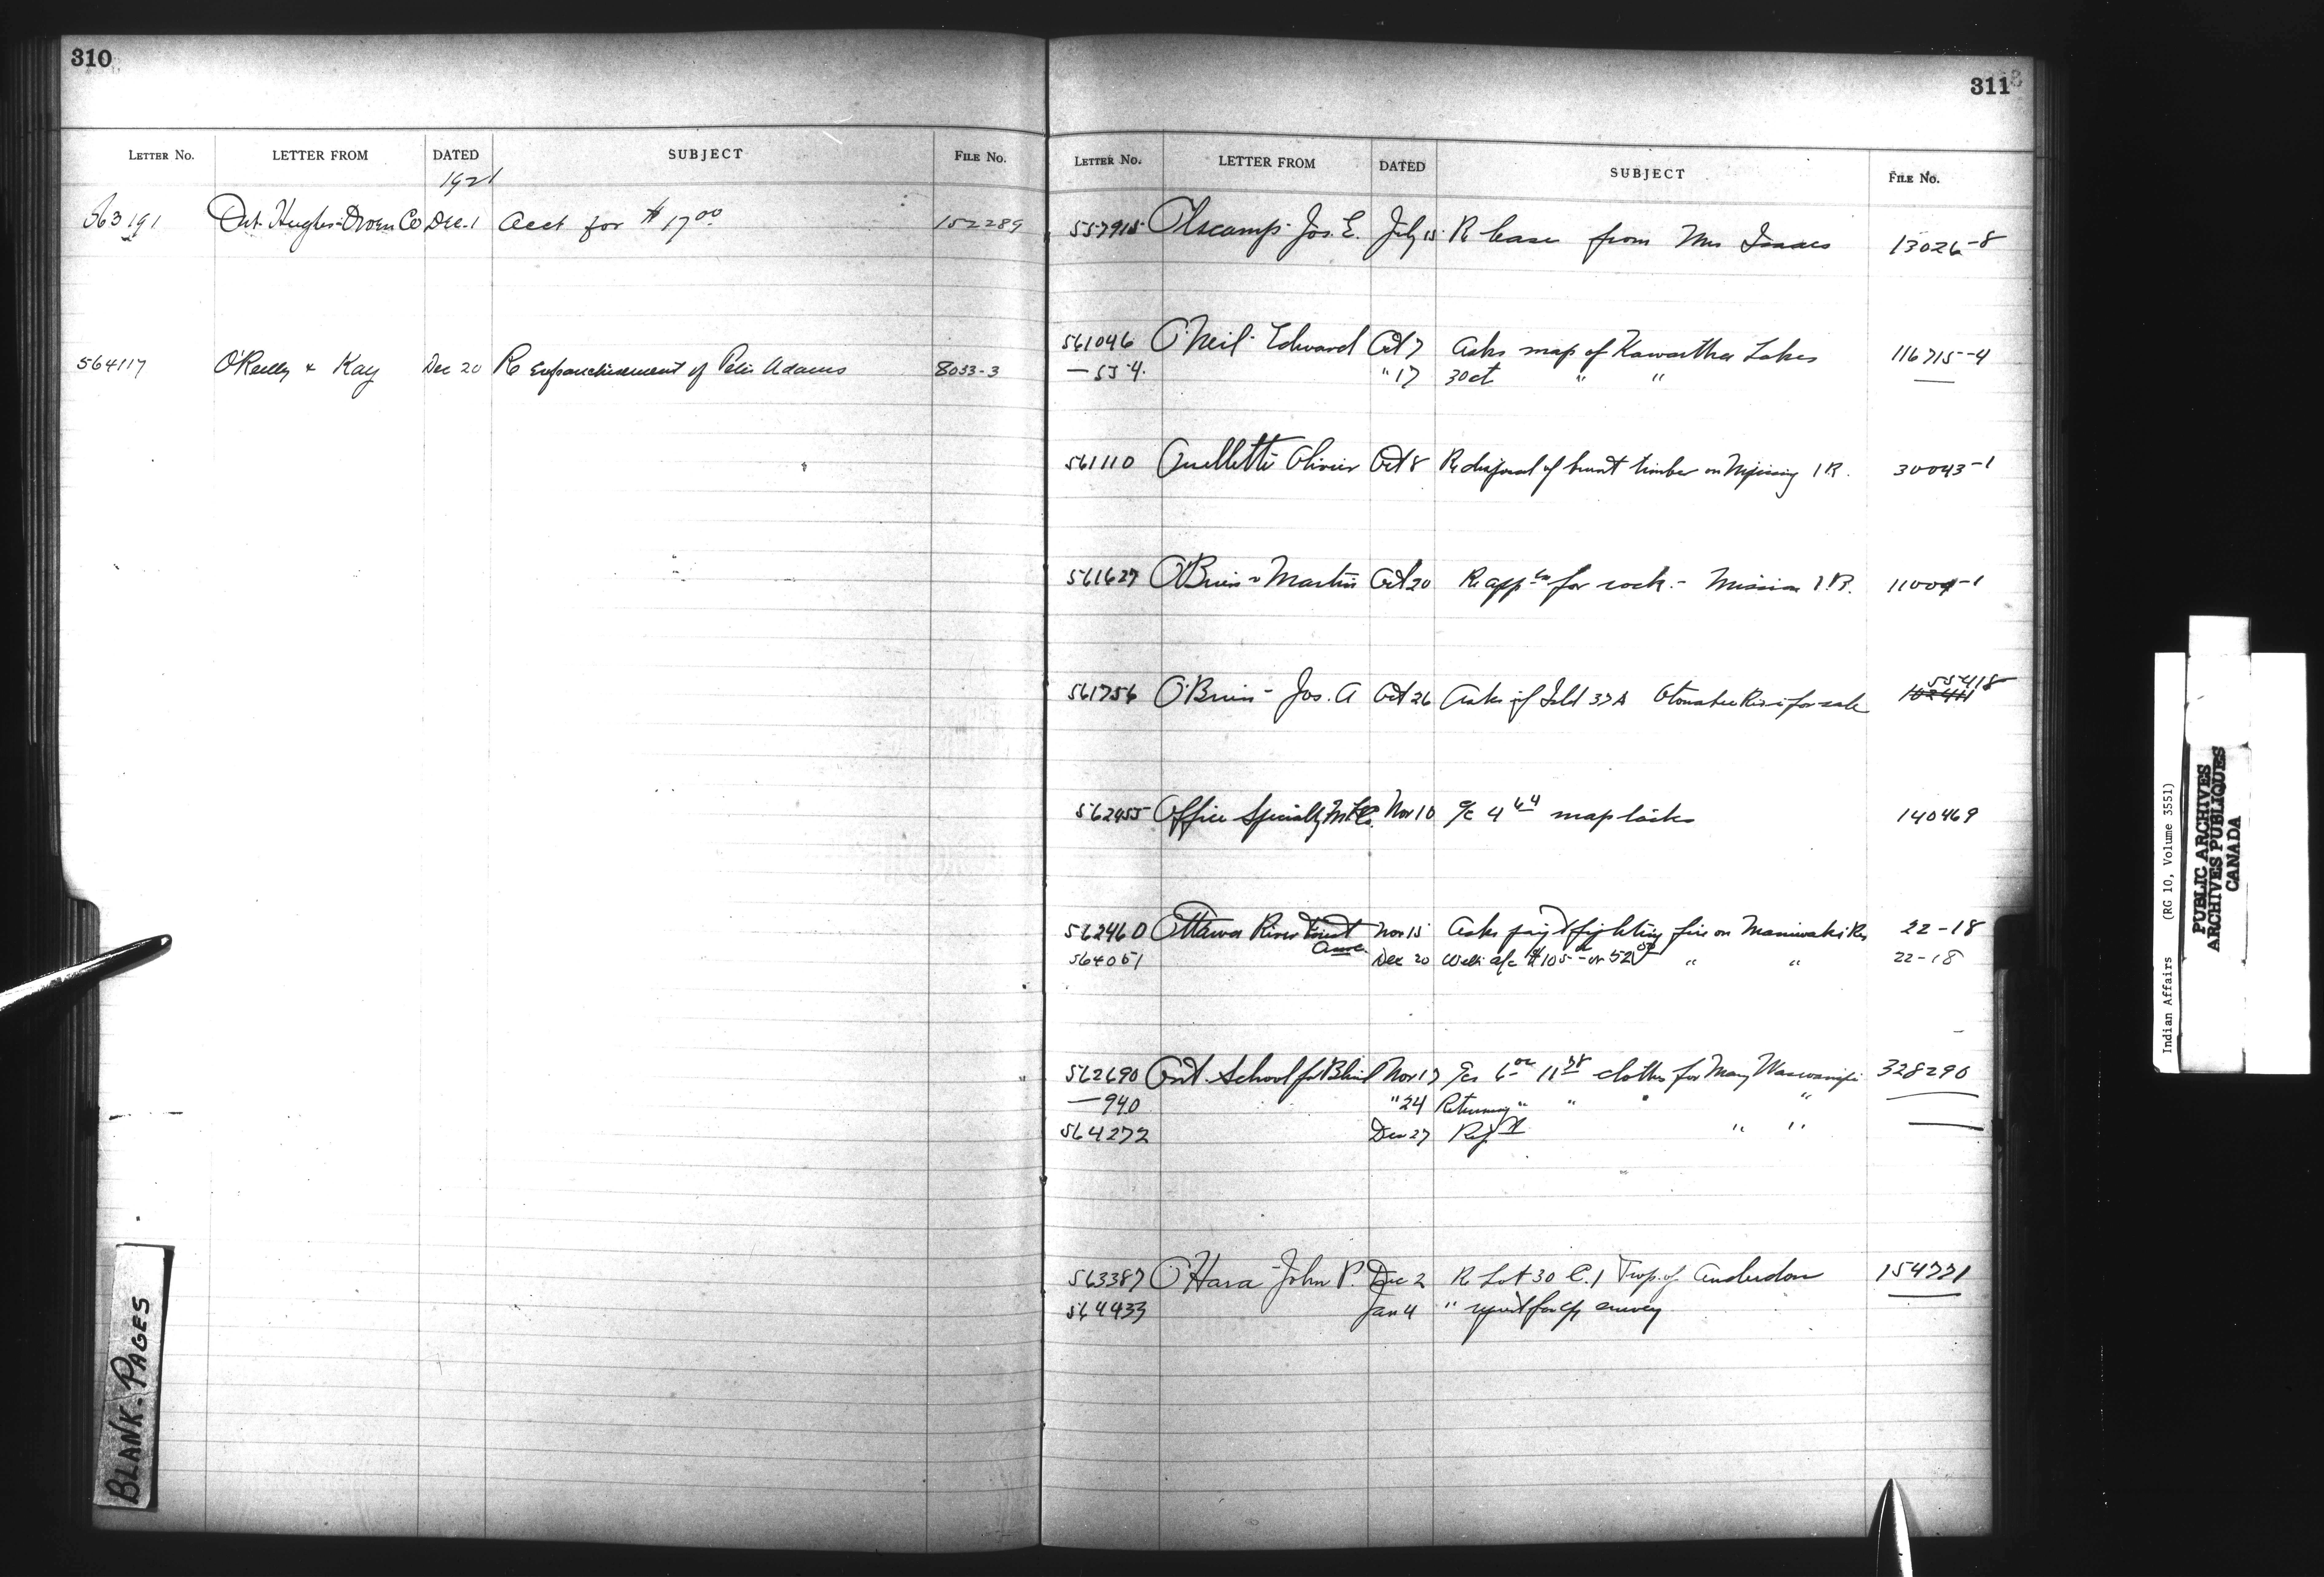 310
LETTER No. LETTER FROM DATED SUBJECT FILE No.
1921
563191 Ont. Hughes-Owen Co Dec. 1 Acct for $17.00 152289
564117 O'Reilly & Kay Dec 20 Re Enfranchisement of Peter Adams 8033-3
311
LETTER No. LETTER FROM DATED SUBJECT FILE No.
557915 Olscamp - Jos. E. July 15 Re lease from Mrs Isaacs 13026-8
561046 O'Neil - Edward Oct 7 Asks map of Kawartha Lakes 116715-4
— 554. " 17 30ct " " —
561110 Ouellette Olivier Oct 8 Re disposal of burnt timber on Nipissing I R. 30043-1
561627 O'Brien & Martin Oct 20 Re appln for rock. - Mission I.R. 11004-1
561756 O'Brien - Jos. A Oct 26 Asks if Isld 37A Otonabee River is for sale 55418
102411
562455 Office Specialty Mf Co. Nov 10 a/c 4.44 map 140469
562460 Ottawa River Forest Nov 15 Asks paymt fighting fire on Maniwaki Res 22-18
Assn.
564051 Dec 20 a/c $105 - or 52 " " 22-18
562690 Ont. School for Blind Nov 17 a/cs 6.00 11.38 clothes for Mary Waswanipi 328290
— 940 " 24 Returning " " " " —
564272 Dec 27 " " —
563387 O'Hara - John P. Dec 2 Re Lot 30 C. 1 Twp. of Anderdon 154771
564433 Jan 4 " for cp survey
BLANK-PAGES
Indian Affairs (RG 10, Volume 3551)
PUBLIC ARCHIVES
ARCHIVES PUBLIQUES
CANADA